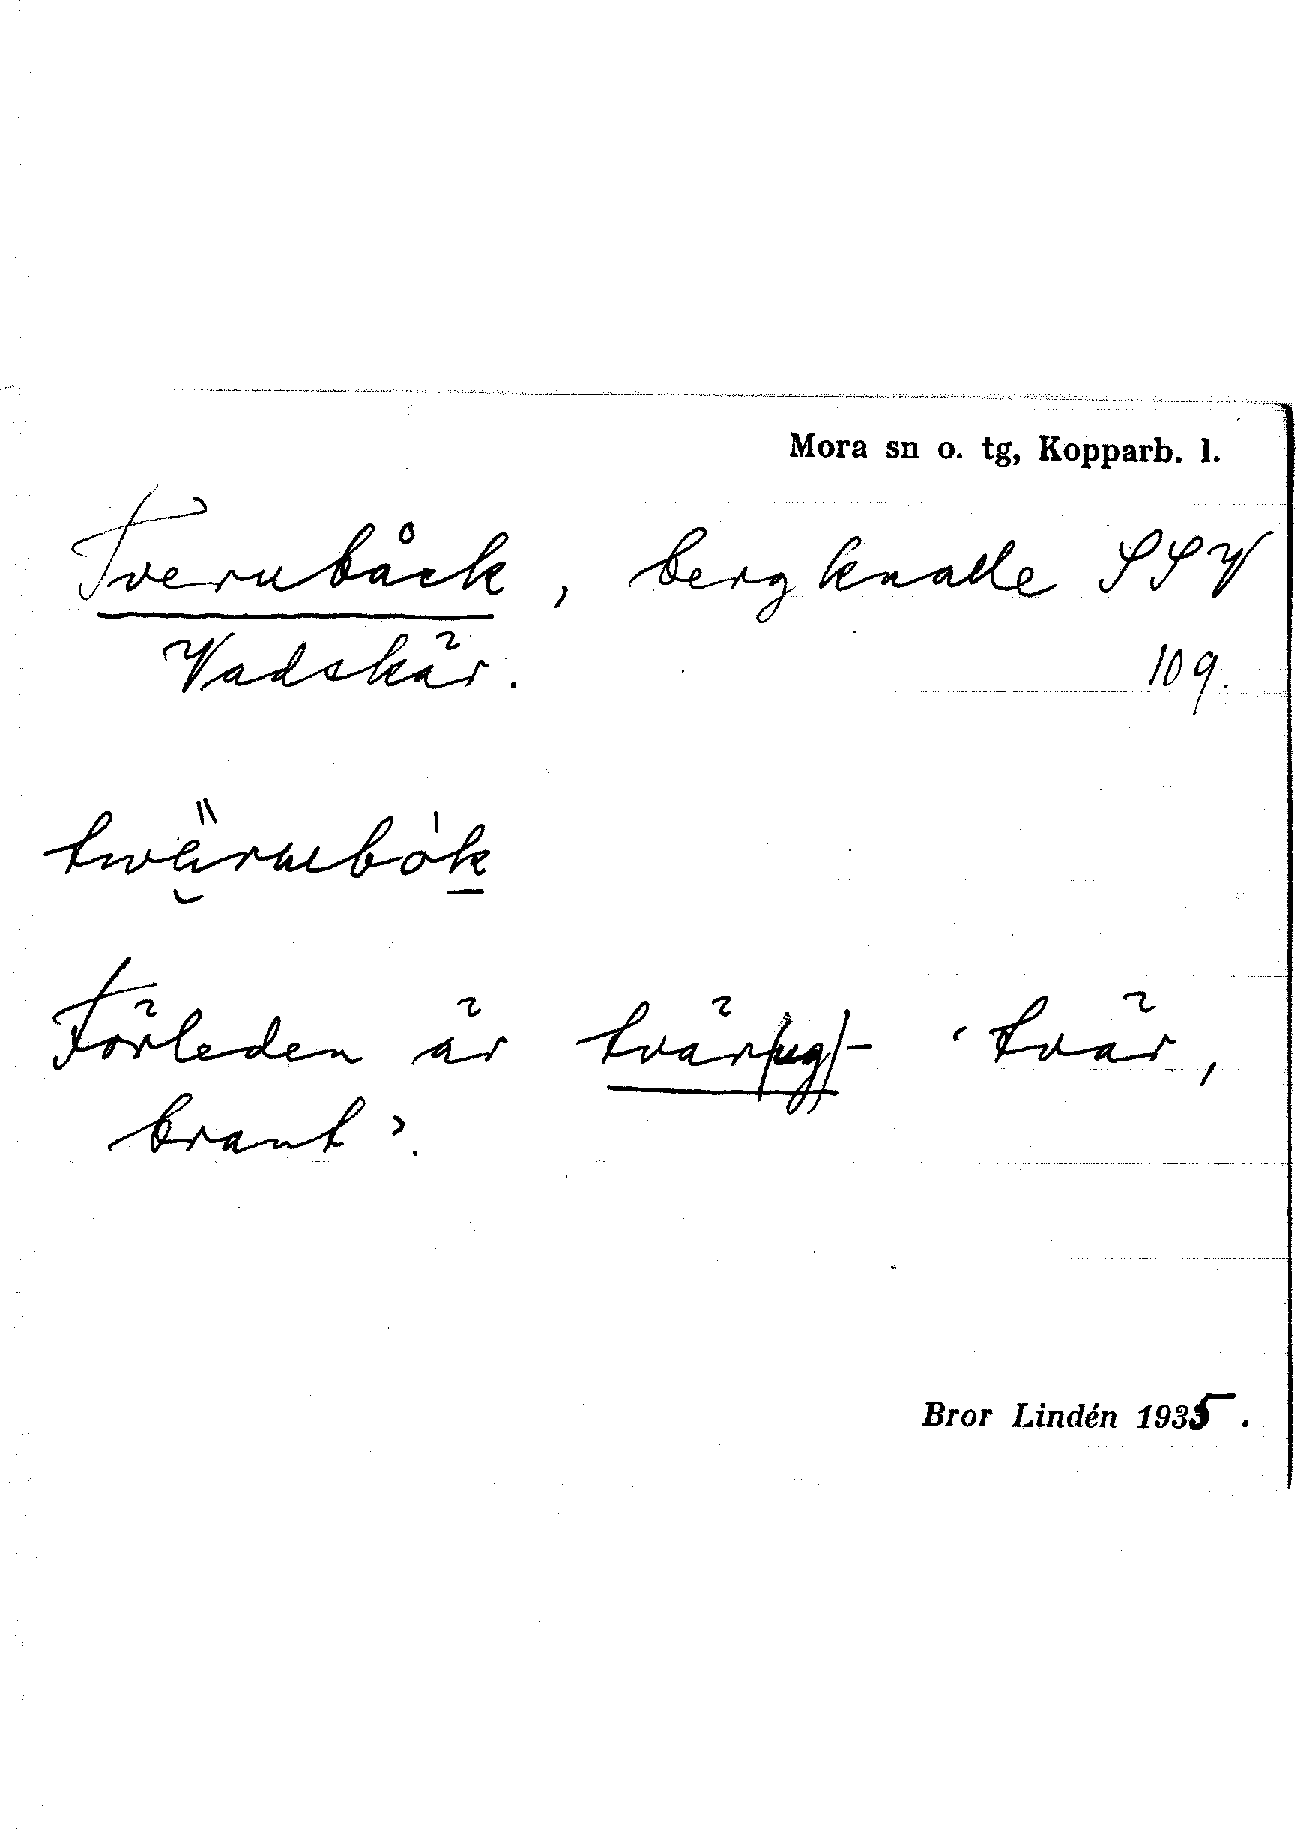 Mora sn o. tg, Kopparb. l.
Tvernbåck, bergknalle SSV
Vadskär. 109.
twärnbòk
Förleden är tvär(ug)- 'tvär,
brant'.
Bror Lindén 1935.